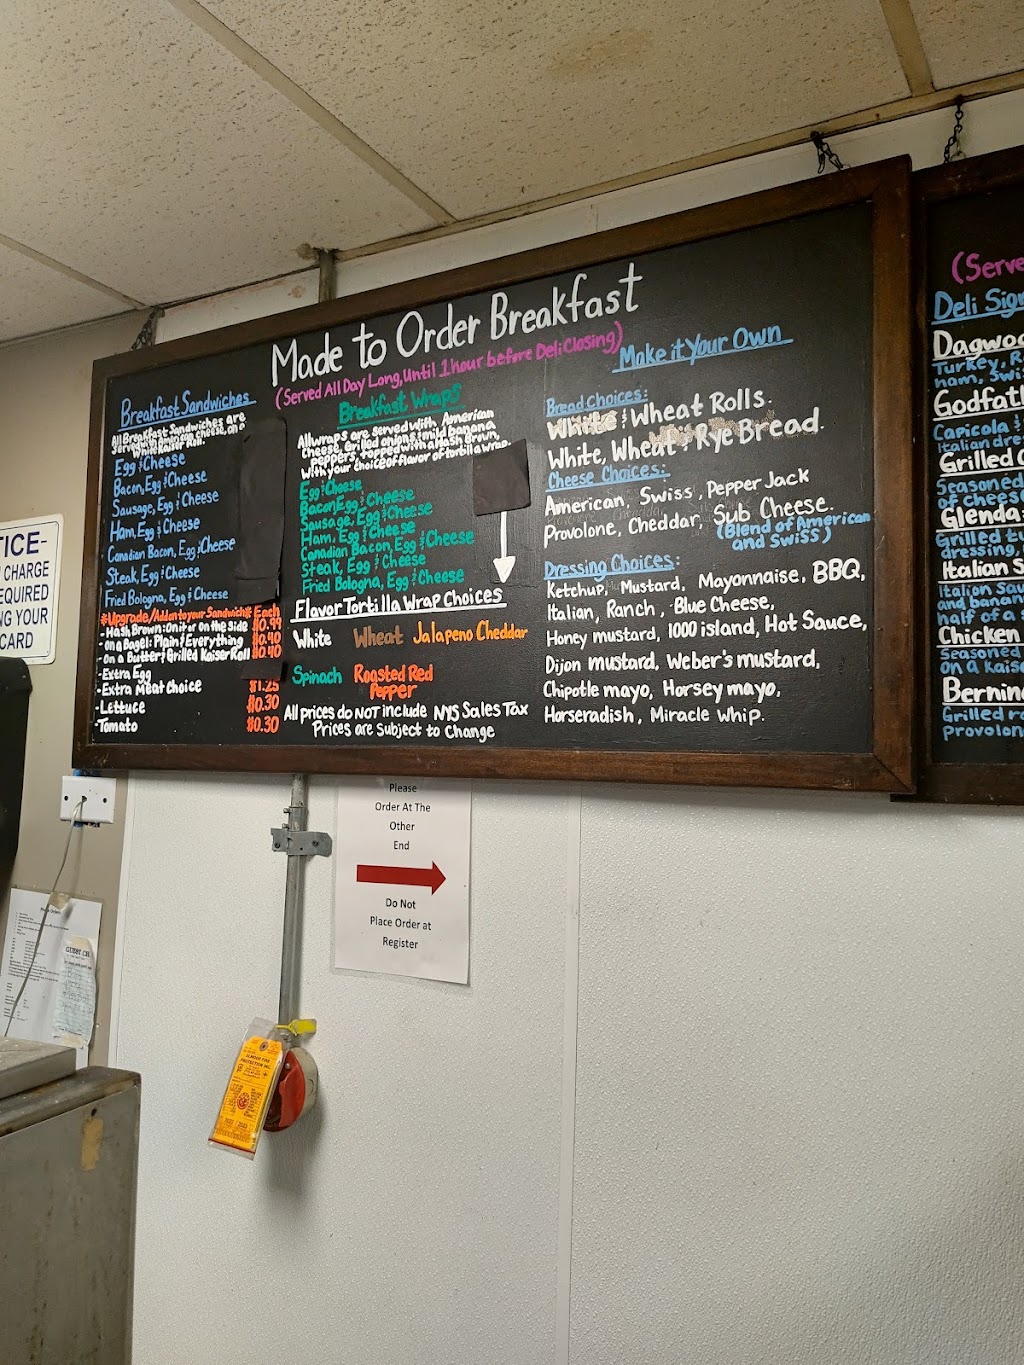 Made to Order Breakfast
(Served All Day Long, Until 1 hour before Deli Closing)
Breakfast Sandwiches
All Breakfast Sandwiches are
served with American cheese, on a
White Kaiser Roll
Egg & Cheese
Bacon, Egg & Cheese
Sausage, Egg & Cheese
Ham, Egg & Cheese
Canadian Bacon, Egg & Cheese
Steak, Egg & Cheese
Fried Bologna, Egg & Cheese
*Upgrade/Add on to your Sandwich* Each
-Hash Brown: On it or on the side $0.99
-on a Bagel: Plain/Everything $0.40
-on a Butter/Grilled Kaiser Roll $0.40
-Extra Egg
-Extra Meat Choice $1.25
-Lettuce $0.30
-Tomato $0.30
Breakfast Wraps
All wraps are served with, American
cheese, grilled onions & mild banana
peppers, topped with a Hash Brown,
with your choice of flavor of tortilla wrap.
Egg & Cheese
Bacon, Egg & Cheese
Sausage, Egg & Cheese
Ham, Egg & Cheese
Canadian Bacon, Egg & Cheese
Steak, Egg & Cheese
Fried Bologna, Egg & Cheese
Flavor Tortilla Wrap Choices
White Wheat Jalapeno Cheddar
Spinach Roasted Red
Pepper
All prices do NOT include NYS Sales Tax
Prices are Subject to Change
Make it Your Own
Bread Choices:
White & Wheat Rolls.
White, Wheat, & Rye Bread.
Cheese Choices:
American, Swiss, Pepper Jack
Provolone, Cheddar, Sub Cheese.
(Blend of American
and Swiss)
Dressing Choices:
Ketchup, Mustard, Mayonnaise, BBQ,
Italian, Ranch, Blue Cheese,
Honey mustard, 1000 island, Hot Sauce,
Dijon mustard, Weber's mustard,
Chipotle mayo, Horsey mayo,
Horseradish, Miracle Whip.
(Serve
Deli Sig
Dagwoo
Turkey, R
ham, Swi
Godfath
Capicola &
Italian dre
Grilled C
Seasoned
of cheese
Glenda
Grilled tu
dressing,
Italian S
Italian Sau
and banan
half of a
Chicken
Seasoned
on a Kaise
Bernin
Grilled ro
provolon
TICE-
CHARGE
EQUIRED
NG YOUR
CARD
Please
Order At The
Other
End
Do Not
Place Order at
Register
GUEST CH